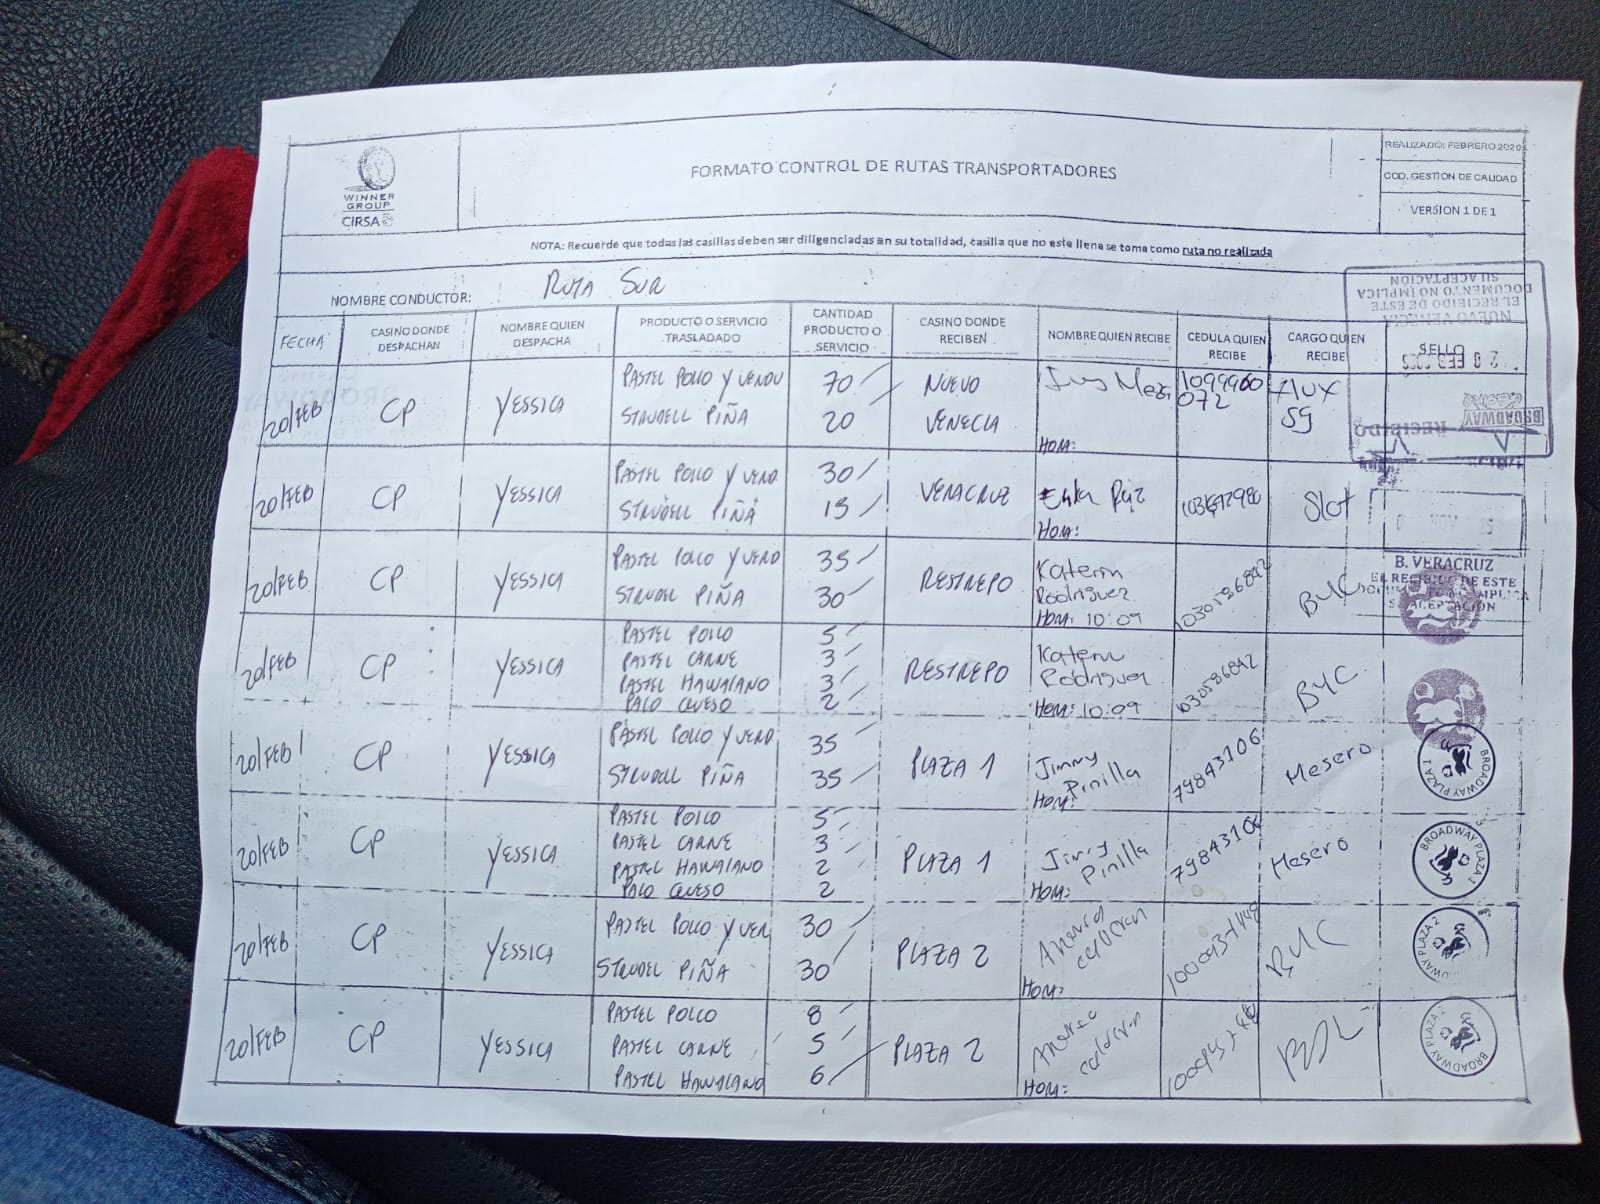 WINNER
GROUP
CIRSA
FORMATO CONTROL DE RUTAS TRANSPORTADORES
REALIZADO: FEBRERO 2020
COD. GESTION DE CALIDAD
VERSION 1 DE 1
NOTA: Recuerde que todas las casillas deben ser diligenciadas en su totalidad, casilla que no este llena se toma como ruta no realizada
NOMBRE CONDUCTOR: RUTA SUR
FECHA CASINO DONDE DESPACHAN NOMBRE QUIEN DESPACHA PRODUCTO O SERVICIO TRASLADADO CANTIDAD PRODUCTO O SERVICIO CASINO DONDE RECIBEN NOMBRE QUIEN RECIBE CEDULA QUIEN RECIBE CARGO QUIEN RECIBE SELLO
NUEVO VENECIA
EL RECIBIDO DE ESTE
DOCUMENTO NO IMPLICA
SU ACEPTACION
RECIBIDO
BROADWAY
20/FEB CP YESSICA PASTEL POLLO Y VERDU 70 NUEVO 1099960
STRUDELL PIÑA 20 VENECIA 072
HORA:
20/FEB CP YESSICA PASTEL POLLO Y VERD 30 VERACRUZ Slot
STRUDELL PIÑA 15
HORA:
B. VERACRUZ
EL RECIBIDO DE ESTE
DOCUMENTO NO IMPLICA
SU ACEPTACION
20/FEB CP YESSICA PASTEL POLLO Y VERD 35 RESTREPO Katerin Rodriguez 1030586842 BYC
STRUDEL PIÑA 30
HORA: 10:09
20/FEB CP YESSICA PASTEL POLLO 5 RESTREPO Katerin Rodriguez 1030586842 BYC
PASTEL CARNE 3
PASTEL HAWAIANO 3
PALO QUESO 2
HORA: 10:09
20/FEB CP YESSICA PASTEL POLLO Y VERD 35 PLAZA 1 Jimmy Pinilla 79843106 Mesero
STRUDELL PIÑA 35
HORA:
BROADWAY PLAZA 1
20/FEB CP YESSICA PASTEL POLLO 5 PLAZA 1 Jimmy Pinilla 79843106 Mesero
PASTEL CARNE 3
PASTEL HAWAIANO 2
PALO QUESO 2
HORA:
BROADWAY PLAZA 1
20/FEB CP YESSICA PASTEL POLLO Y VER 30 PLAZA 2 BYC
STRUDEL PIÑA 30
HORA:
BROADWAY PLAZA 2
20/FEB CP YESSICA PASTEL POLLO 8 PLAZA 2
PASTEL CARNE 5
PASTEL HAWAIANO 6
HORA:
BROADWAY PLAZA 2